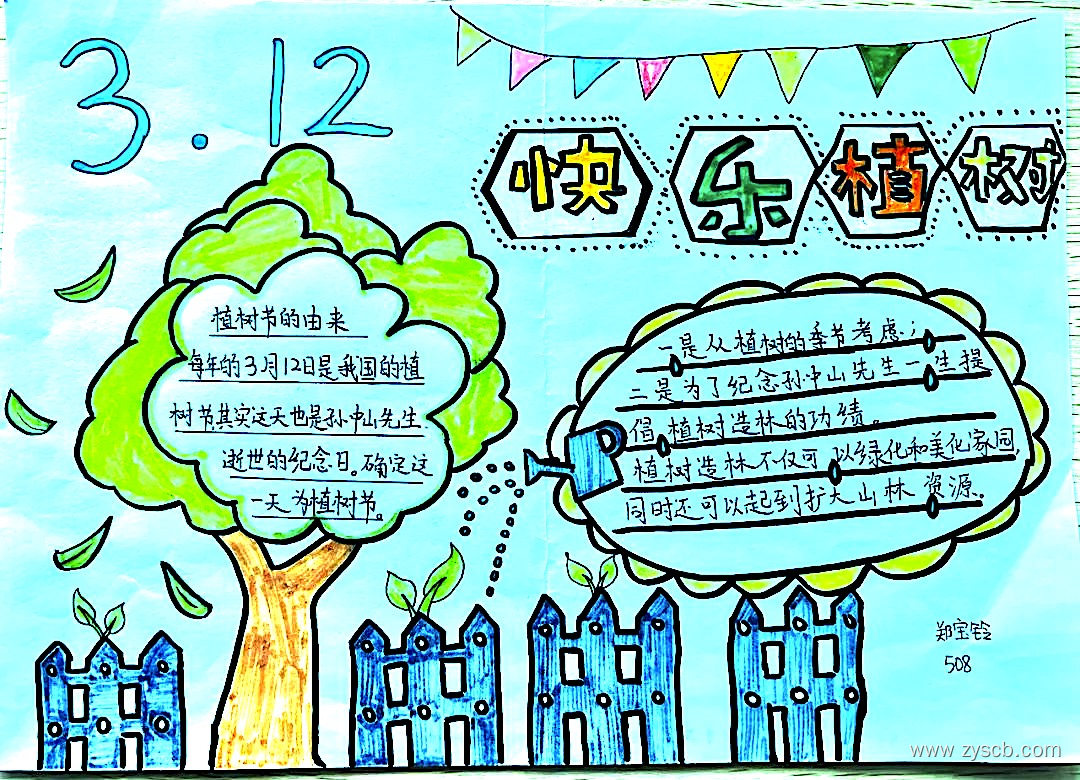 3.12
快乐植树
植树节的由来
每年的3月12日是我国的植
树节,其实这天也是孙中山先生
逝世的纪念日。确定这
一天为植树节。
一是从植树的季节考虑;
二是为了纪念孙中山先生一生提
倡植树造林的功绩。
植树造林不仅可以绿化和美化家园,
同时还可以起到扩大山林资源。
郑宝铃
508
www.zyscb.com